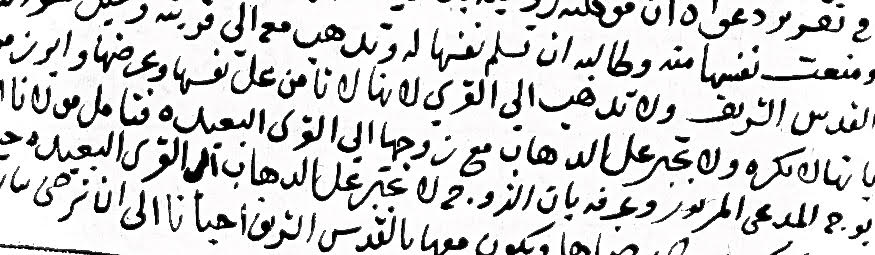 في تقرير دعواه ان موكلته زو
ومنعت نفسها منه وطالبه ان تسلم نفسها له وتذهب مع الى قريته
القدس الشريف ولا تذهب الى القرى لانها لا تامن على نفسها وعرضها وابرز من
بانها لا تكره ولا تجبر على الدهاب مع زوجها الى القرى البعيده فتامل مولانا ا
بوجه المدعي المزبور وعرفه بان الزوجه لا تجبر على الدهاب الى القرى البعيده
رضاها ويكون معها بالقدس الشريف احيانا الى ان ترضى